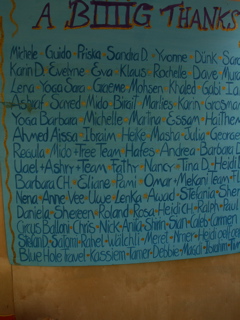 A BIIIIG THANKS
Michele Guido Priska Sandra D. Yvonne Dunk
Karin D. Evelyne Eva Klaus Rachelle Dave
Lena Yoga Sara Graeme Mohsen Khaled Gabi
Ashraf Sayed Mido Birgit Marlies Karin Grossman
Yoga Barbara Michelle Marina Essam Haithem
Ahmed Aissa Ibraim Heike Masha Julia Georges
Regula Mido +Tree Team Hafes Andrea Barbara D
Uael +Ashry +Team Nancy Tina D. Heidi
Barbara CH. Eliane Fami Omar +Mekani Team
Nena Anne Vee Uwe Lenka Awad Stefania
Daniela Shereen Roland Rosa Heidi CH Ralph Paul
Cirus Ballani Chris Nick Anita Shim Sian Caleb Carmen
Rahel Walchli Meret Amer Heidi
Blue Hole Travel Kassiem Tamer Debbie Ibrahim